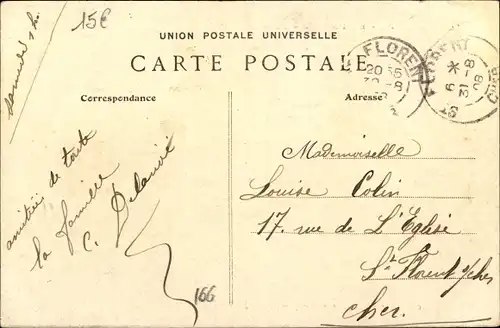 15€
Samedi
UNION POSTALE UNIVERSELLE
CARTE POSTALE
FLORENT
20 55
30-8
FLORENT
6 *
31-8
08
CHER
Correspondance
Adresse
amitié de toute
la famille
C. Delainé
166
Mademoiselle
Louise Colin
17. rue de L'Eglise
St Florent s/cher
Cher.